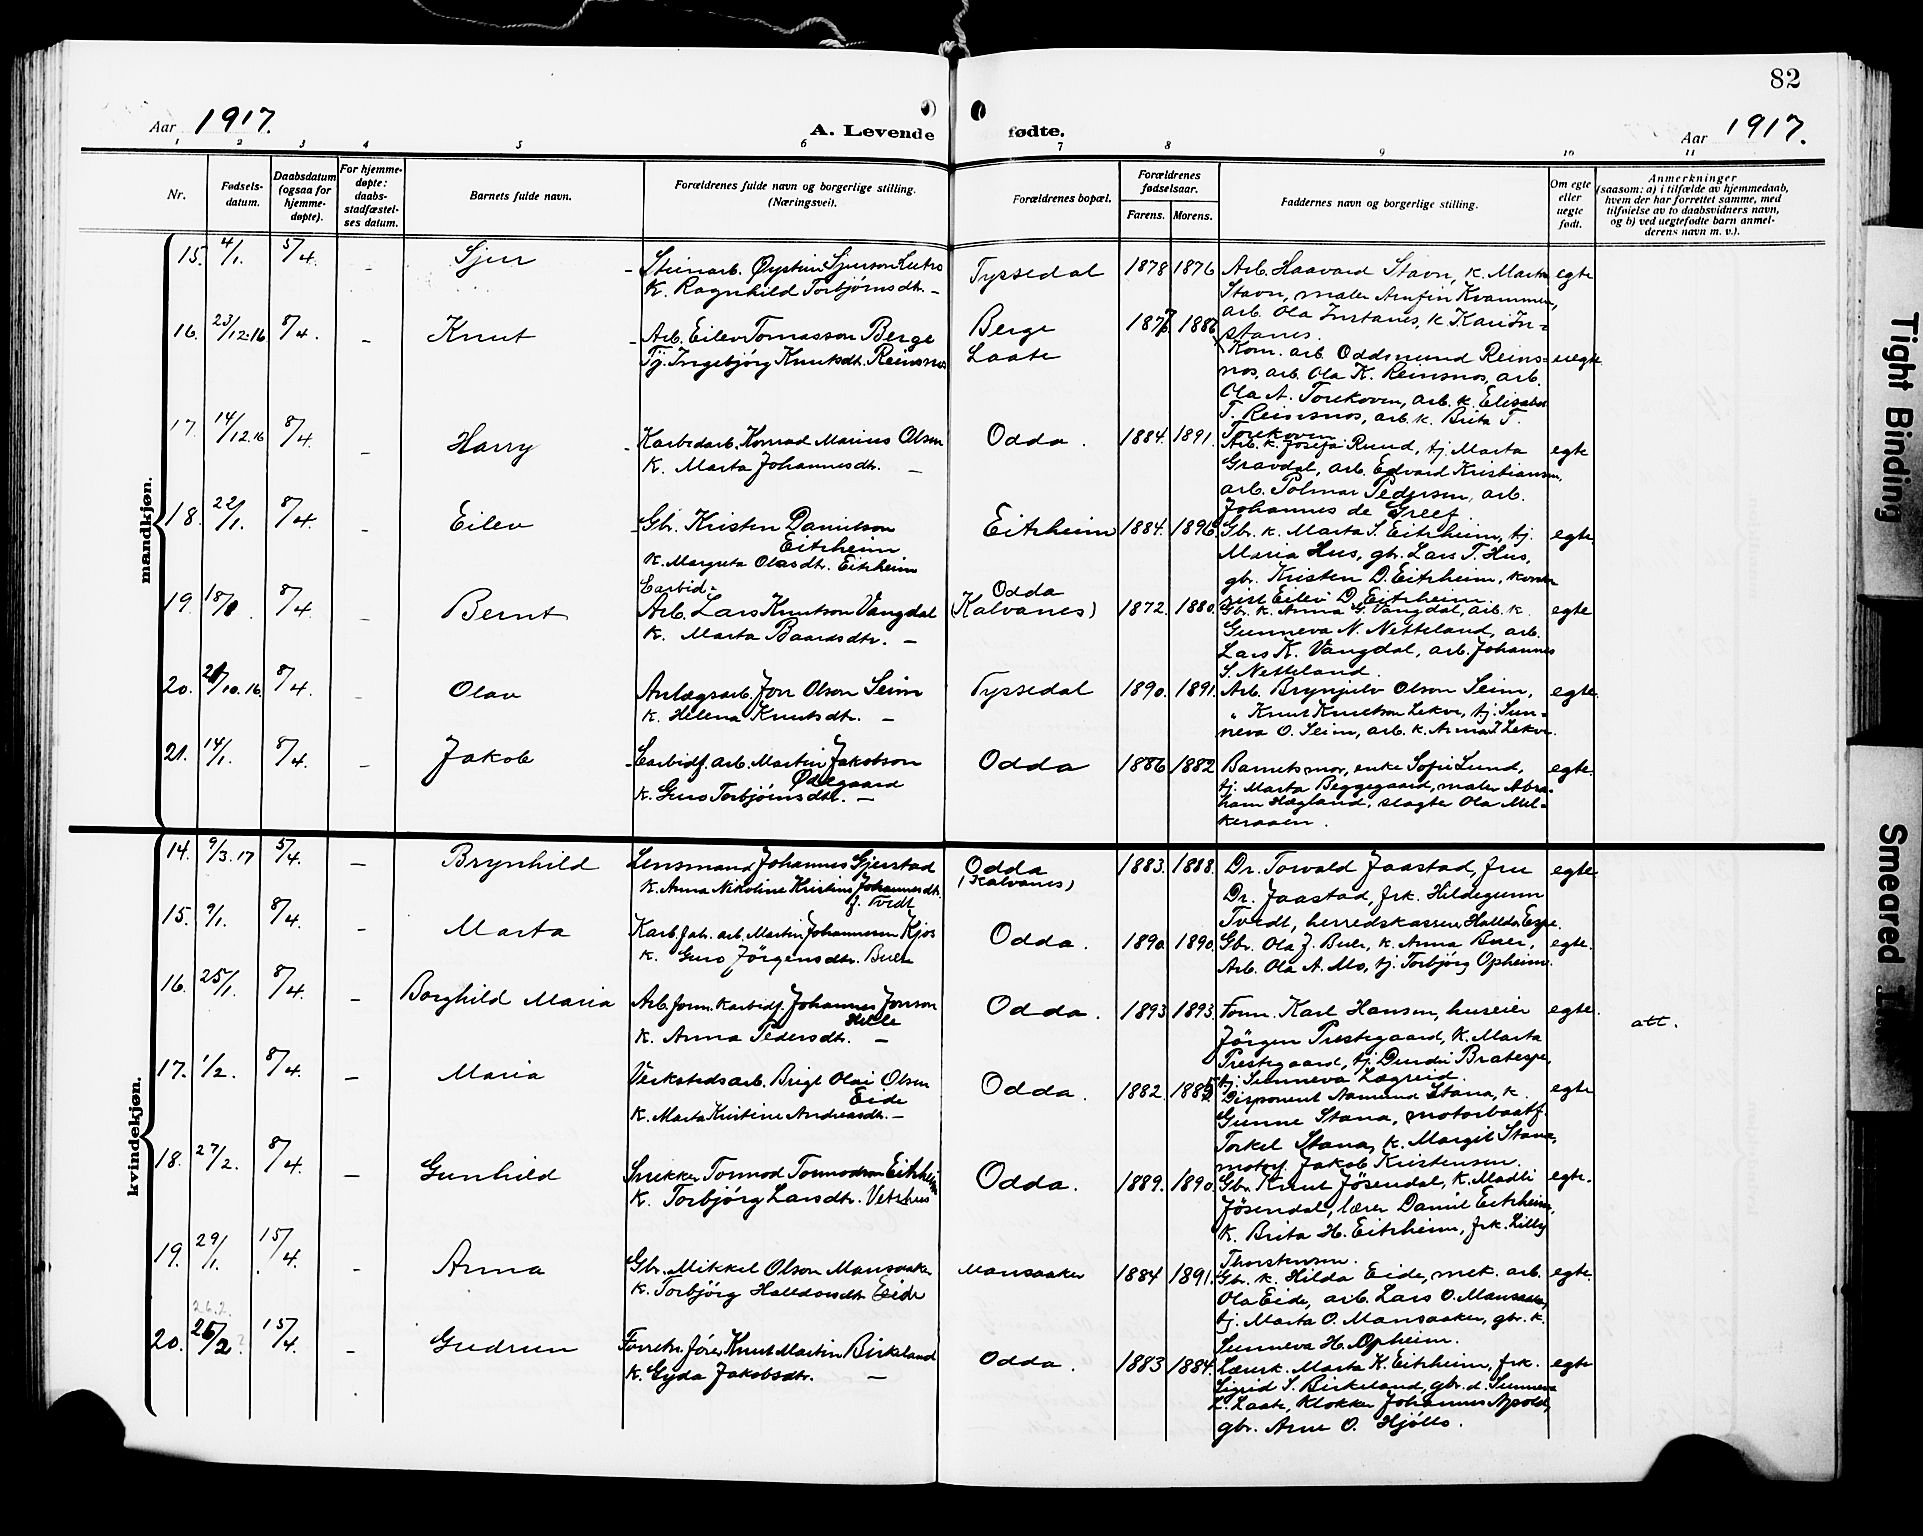 82
Aar 1917.
A. Levende fødte.
Aar 1917.
1 2 3 4 5 6 7 8 9 10 11
Nr.
Fødsels-
datum.
Daabsdatum
(ogsaa for
hjemme-
døpte).
For hjemme-
døpte:
daabs-
stadfæstel-
ses datum.
Barnets fulde navn.
Forældrenes fulde navn og borgerlige stilling.
(Næringsvei).
Forældrenes bopæl.
Forældrenes
fødselsaar.
Farens. Morens.
Faddernes navn og borgerlige stilling.
Om egte
eller
uegte
født.
Anmerkninger
(saasom: a) i tilfælde av hjemmedaab,
hvem der har forrettet samme, med
tilføielse av to daabsvidners navn,
og b) ved uegtefødte barn anmel-
derens navn m. v.).
mandkjøn.
15. 4/1. 5/4. - Sjur - Steinarb. Øystein Sjurson
K. Ragnhild Torbjørnsdtr. -
Tyssedal 1878 1876
Arb. Haavard Stavn, k. Marta
Stavn, maler Arnfin Kvammen,
arb. Ola Instanes, k Kari In-
stanes.
egte
16. 23/12.16 8/4. - Knut - Arb. Eilev Tomasson Berge
Tj. Ingebjörg Knutsdt. Reinsnos
Berge
Laate
Kom. arb Oddmund Reins-
nos, arb. Ola K. Reinsnos, arb.
Ola A. Torekoven, arb. k. Elisabet
T. Reinsnos, arb. k. Brita T.
Torekoven
uegte
17. 14/12.16 8/4. - Harry - Karbidarb. Konrad Marius Olsen
K. Marta Johannesdt. -
Odda. 1884. 1891.
Arb. k. Josefa Rund, tj Marta
Gravdal, arb. Edvard Kristiansen,
arb. Polmar Pedersen, arb.
Johannes de Greef
egte
18. 22/1. 8/4. - Eilev - Gbr. Kristen Danielson
Eitrheim
K. Margreta Olasdt. Eitrheim
Eitrheim 1884. 1896
Gbr. k. Marta S. Eitrheim, tj.
Maria Hus, gbr. Lars T. Hus,
gbr. Kristen D. Eitrheim,
Eilev D. Eitrheim.
egte.
19. 8/4 - Bernt
Carbid-
Arb. Lars Knutson Vangdal
K. Marta Baardsdtr. -
Odda
(Kalvanes) 1872. 1880.
Gbr. k. Anna G. Vangdal, arb. k.
Gunneva N. Netteland, arb.
Lars K. Vangdal, arb. Johannes
S. Netteland.
egte
20. 21/10.16. 8/4. - Olav Anlægsarb. Jon Olson Seim
K. Helena Knutsdtr. -
Tyssedal 1890. 1891.
Arb. Brynjulv Olson Seim,
" Knut Knutson Lekve, tj. Sun-
neva O. Seim, arb. k. Anna Lekve.
egte.
21. 14/1. 8/4. - Jakob - Carbidf. arb. Martin Jakobson
Ødegaard
K. Guro Torbjörnsdtr. -
Odda 1886 1882
Barnets mor, enke Sofie Lund,
tj. Marta Beggegaard, maler Abra-
ham Hægland, slagter Ola Mel-
keraaen.
egte.
kvindekjøn.
14. 9/3.17 5/4. - Brynhild Lensmand Johannes Gjerstad
K. Anna Nikoline Kristine Johannesdtr.
f. Tvedt
Odda
(Kalvanes) 1883. 1888.
Dr. Torvald Jaastad, fru
Dr. Jaastad, frk. Hildegunn
Tvedt, herredskasserer Halldor Espe.
egte.
15. 9/1. 8/4. - Marta Karb. fab. arb. Martin Johannessen Kjos
K. Guro Jörgensdtr. Buer
Odda. 1890. 1890.
Gbr. Ola J. Buer, k. Anna Buer,
Arb. Ola A. Mo, tj. Torbjörg Opheim.
egte.
16. 25/1. 8/4. - Borghild Maria Arb. form. Karbidf. Johannes Jonson
Hille
K. Anna Pedersdtr. -
Odda. 1893 1893.
Form. Karl Hansen, huseier
Jörgen Prestegaard, K. Marta
Prestegaard, tj. Bratespe,
tj. Sunneva Lægreid.
egte. att.
17. 1/2. 8/4. - Maria Verkstedsarb. Brigt Olai Olsen
Eide
K. Marta Kristine Andreasdtr. -
Odda. 1882.
Disponent Aamund Stana, k.
Gunne Stana, motorbaatf.
Torkel Stana, k. Margit Stana,
motorf. Jakob Kristensen.
egte
18. 27/2. 8/4. - Gunhild Snekker Tormod Tormodson Eitrheim
K. Torbjörg Larsdtr. Vetrhus
Odda. 1889. 1890.
Gbr. Knut Jösendal, k. Madli
Jösendal, lærer Daniel Eitrheim,
K. Brita H. Eitrheim, frk. Lilly
Thorstensen.
egte.
19. 29/1. 15/4. - Anna Gbr. Mikkel Olson Mansaaker
K. Torbjörg Halldorsdtr. Eide
Mansaaker 1884 1891.
Gbr. k. Hilda Eide, mek. arb.
Ola Eide, arb. Lars O. Mansaaker,
tj. Marta O. Mansaaker, gbr. k.
Sunneva H. Opheim.
egte.
26.2.
20. 26/2? 15/4. - Gudrun Forretn. fører Knut Martin Birkeland
K. Gyda Jakobsdtr. -
Odda. 1883 1884.
Lærerk. Marta K. Eitrheim, frk.
Sigrid S. Birkeland, gbr. d. Sunneva
L. Laate, klokker Johannes Apold,
gbr. Arne O. Hjöllo.
egte
Tight Binding
Smeared